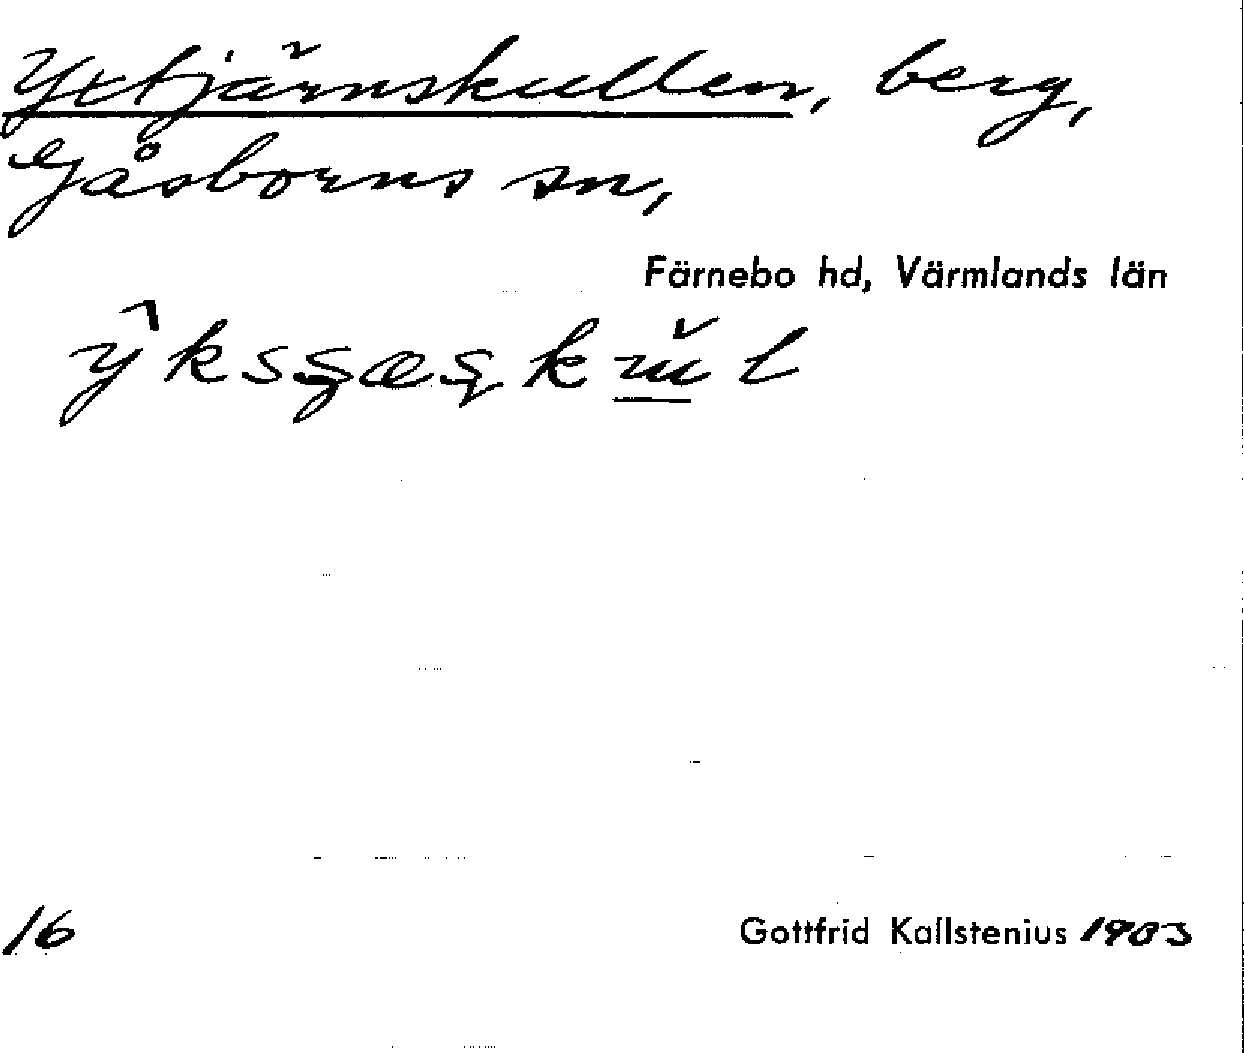 Yxtjärnskullen, berg,
Gåsborns sn,
Färnebo hd, Värmlands län
16
Gottfrid Kallstenius 1903